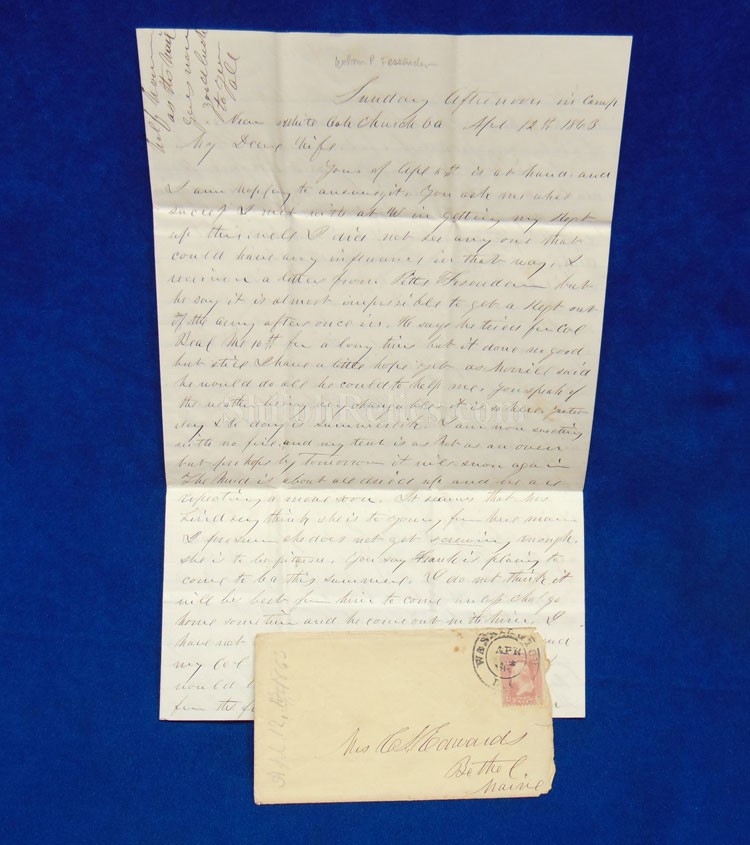 half hour
as the mail
goes now
good luck
to you
all
William P. Fessenden
Sunday Afternoon in Camp
Near White Oak Church Va Apl 12th 1863
My Dear Wife
Yours of Apl 6th is at hand and
I am hoping to answer it. You ask me what
success I met with at W in getting my Regt
up this week. I did not see any one that
could have any influence in that way. I
received a letter from Pitts Fessenden but
he say it is almost impossible to get a Regt out
of the army after once in. He says he tried for Col
Beal Me 10th for a long time but it done no good
but still I have a little hope yet as Morrill said
he would do all he could to help me. You speak of
the weather being very changable it is so here yester
day & to day is summerlik I am now
with no fire and my tent is as hot as an oven
but prehaps by tomorrow it will snow again
The Mud is about all dried up and we are
expecting a move soon. It seems that Mrs
Lindsey think she is to young for her man
I presum she does not get screwing enough.
she is to be pitied. You say Frank is planing to
come to Va this summer. I do not think it
will be best for him to come unless I shal go
home sometime and he come out with him. I
have not
my Col
would b
from the f
and
WASHINGTON
APR
Apl 12th 1863
Mrs C S Edwards
Bethel
Maine